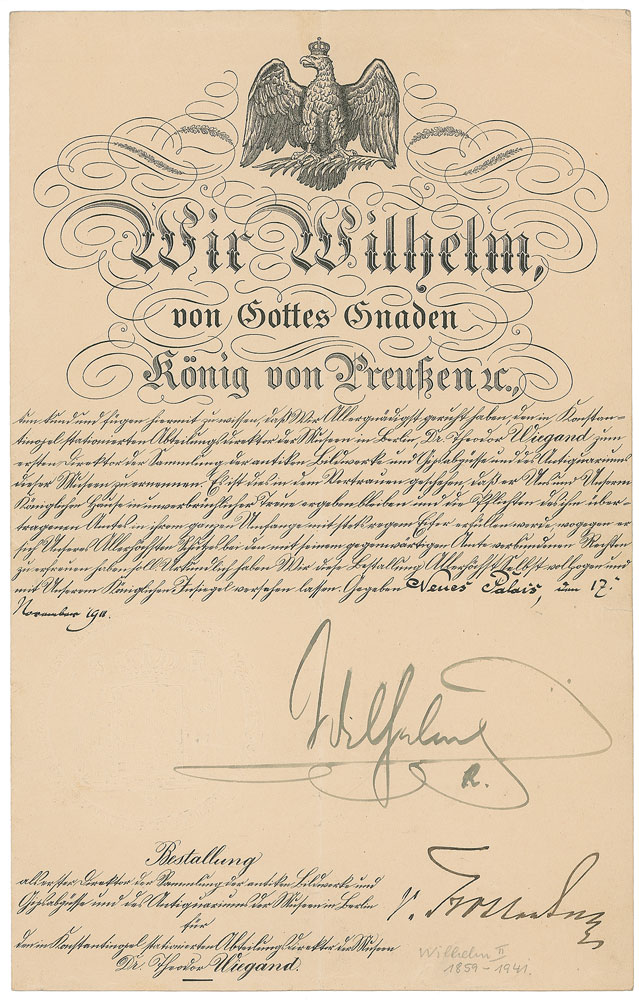 Wir Wilhelm,
von Gottes Gnaden
König von Preußen ꝛc.,
tun kund und fügen hiermit zu wissen, daß Wir Allergnädigst geruht haben, den in Konstan-
tinopel stationierten Abteilungsdirektor der Museen in Berlin, Dr. Theodor Wiegand zum
ersten Direktor der Sammlung der antiken Bildwerke und Gipsabgüsse und des Antiquariums
dieser Museen zu ernennen. Es ist dies in dem Vertrauen geschehen, daß er Uns und Unserem
Königlichen Hause in unverbrüchlicher Treue ergeben bleiben und die Pflichten des ihm über-
tragenen Amtes in ihrem ganzen Umfange mit stets regem Eifer erfüllen werde, wogegen er
sich Unseres Allerhöchsten Schutzes bei den mit seinem gegenwärtigen Amte verbundenen Rechten
zu erfreuen haben soll. Urkundlich haben Wir diese Bestallung Allerhöchst Selbst vollzogen und
mit Unserem Königlichen Insiegel versehen lassen. Gegeben Neues Palais, den 17.
November 1911.
Wilhelm
R.
Bestallung
als erster Direktor der Sammlung der antiken Bildwerke und
Gipsabgüsse und des Antiquariums der Museen in Berlin
für
den in Konstantinopel stationierten Abteilungsdirektor der Museen
Dr. Theodor Wiegand.
Wilhelm II
1859-1941.